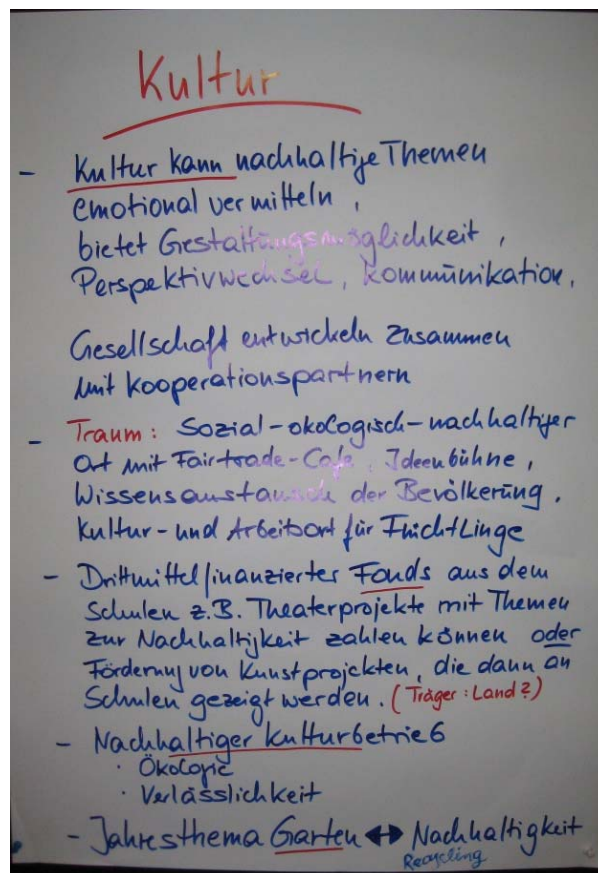 Kultur
- Kultur kann nachhaltige Themen
emotional vermitteln,
bietet Gestaltungsmöglichkeit,
Perspektivwechsel, Kommunikation.
Gesellschaft entwickeln zusammen
mit Kooperationspartnern
- Traum: Sozial-okologisch-nachhaltiger
Ort mit Fairtrade-Cafe, Ideenbühne,
Wissensaustausch der Bevölkerung.
Kultur- und Arbeitsort für Flüchtlinge
- Drittmittelfinanzierter Fonds aus dem
Schulen z.B. Theaterprojekte mit Themen
zur Nachhaltigkeit zahlen können oder
Förderung von Kunstprojekten, die dann an
Schulen gezeigt werden. (Träger: Land?)
- Nachhaltiger Kulturbetrieb
· Ökologie
· Verlässlichkeit
- Jahresthema Garten ↔ Nachhaltigkeit
Recycling